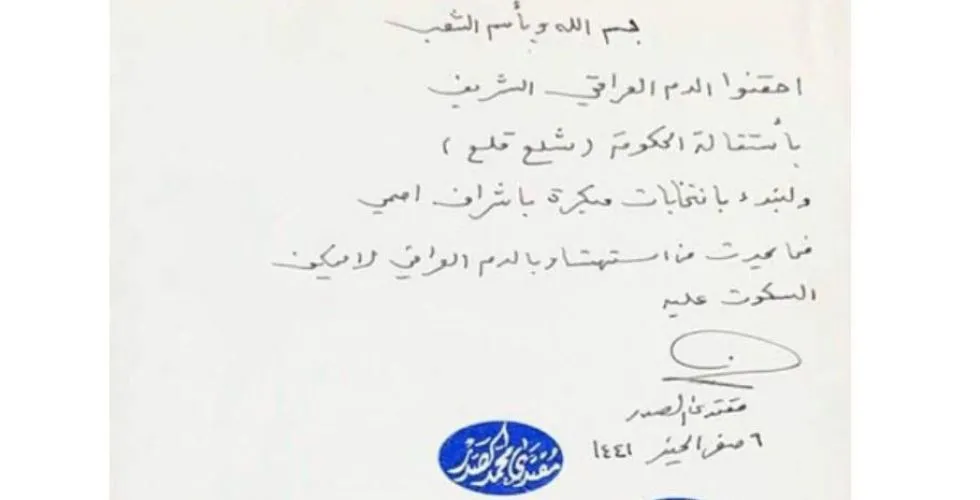 بسم الله وبأسم الشعب
احقنوا الدم العراقي الشريف
بأستقالة الحكومة (شلع قلع)
ولنبدء بانتخابات مبكرة باشراف اممي
فما يحدث من استهتار بالدم العراقي لا يمكن
السكوت عليه
مقتدى الصدر
٦ صفر الخير ١٤٤١
مقتدى محمد الصدر